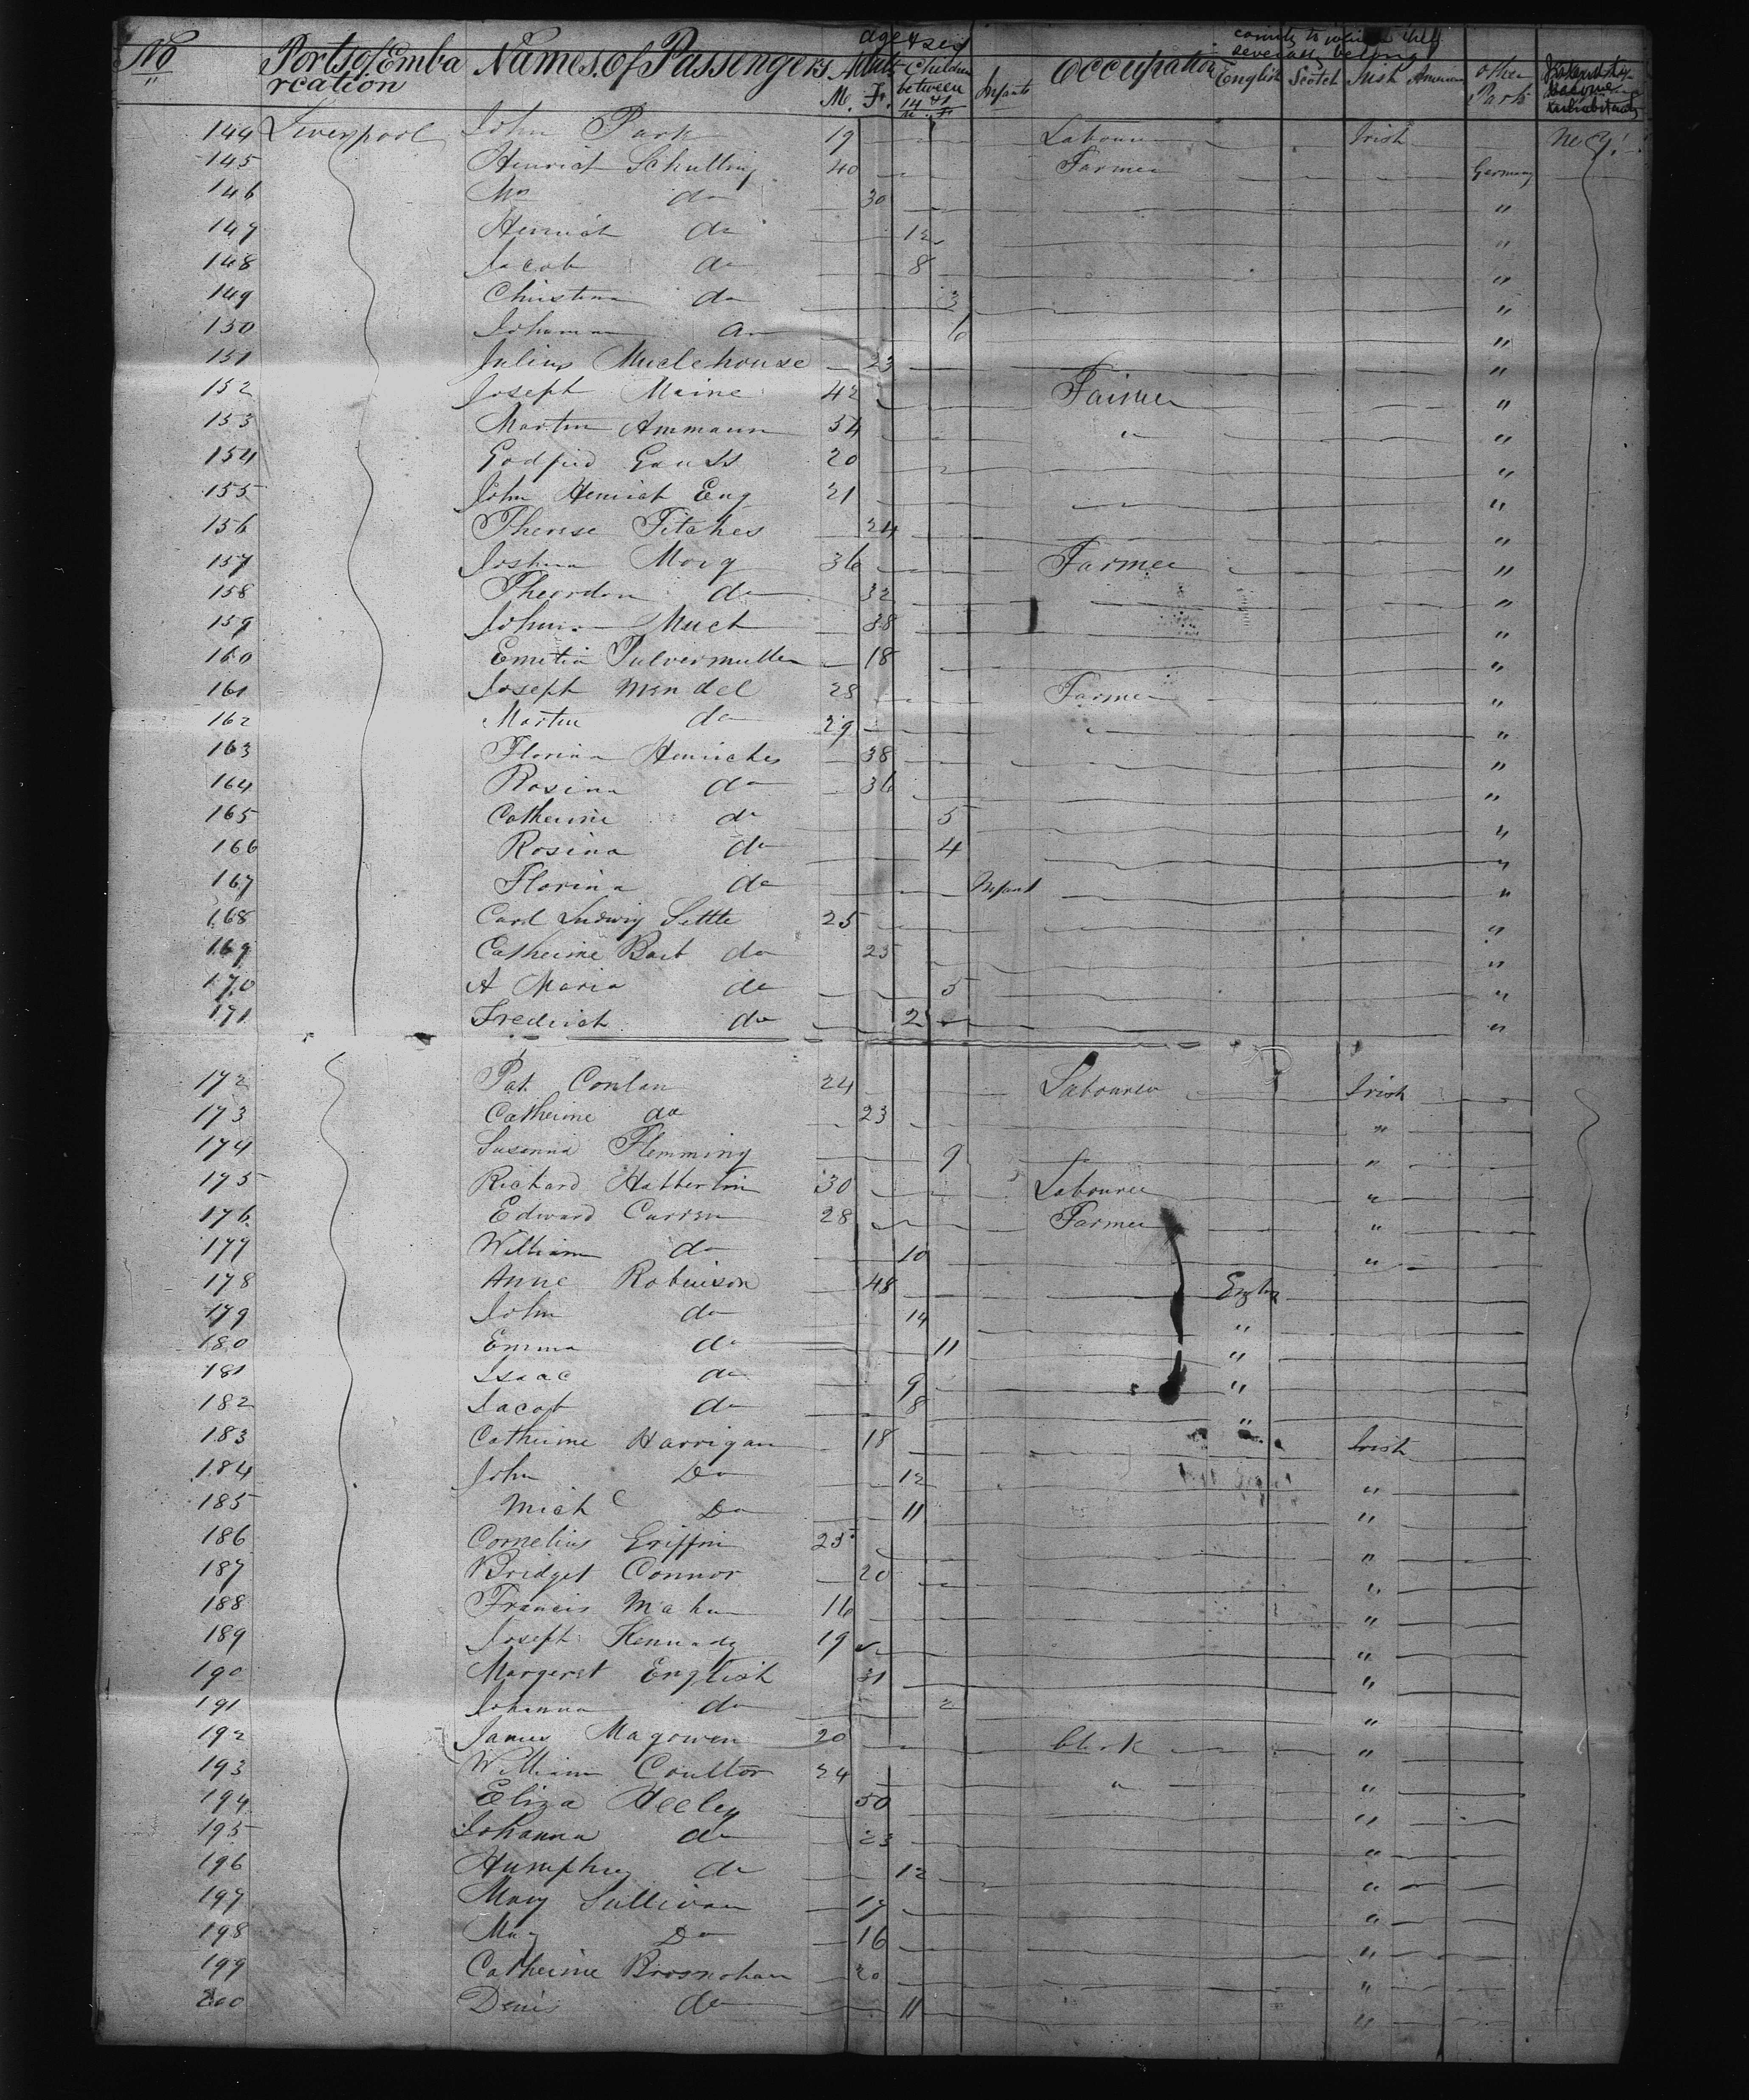 No Ports of Embarcation Names of Passengers Age & sex Adults M. F. Children between 14 & 1 M F Infants Occupation County to which they severally belong English Scotch Irish American Other Parts
144 Liverpool John Park 19 Labourer Irish
145 Henrich Schulting 40 Farmer Germany
146 Mrs do 30 "
147 Henrich do 12 "
148 Jacob do 8 "
149 Christina do 3 "
150 Johanna do 6 "
151 Julius Muclehouse 23 "
152 Joseph Maine 42 Farmer "
153 Martin Ammann 34 " "
154 Godfried 20 "
155 John Henrich Eng 21 "
156 Therese Titches 24 "
157 Joshua Morg 36 Farmer "
158 do 32 "
159 Much 38 "
160 Pulvermuller 18 "
161 Joseph Mendel 28 Farmer "
162 Martin do 29 " "
163 Florina Henriches 38 "
164 Rosina do 36 "
165 Catherine do 5 "
166 Rosina do 4 "
167 Florina do Infant "
168 Carl Ludwig Settle 25 "
169 Catherine Barb do 25 "
170 A Maria do 5 "
171 Fredrich do 2 "
172 Pat Conlan 24 Labourer Irish
173 Catherine do 23 "
174 Susanna Flemming 9 "
175 Richard 30 Labourer "
176 Edward Curren 28 Farmer "
177 William do 10 "
178 Anne Robinson 48
179 John do 14 "
180 Emma do 11 "
181 Isaac do 9 "
182 Jacob do 8 "
183 Catherine Harrigan 18 Irish
184 John Do 12 "
185 Mich Do 11 "
186 Cornelius Griffin 25 "
187 Bridget Connor 20 "
188 Francis 16 "
189 Joseph Kennady 19 "
190 Margeret English 31 "
191 Johanna do 2 "
192 James Magowen 20 Clerk "
193 William Coulter 24 " "
194 Eliza Heeley 50 "
195 Johanna do 23 "
196 Humphrey do 12 "
197 Mary Sullivan 17 "
198 Do 16 "
199 Catherine Brosnohan 20 "
200 Denis do 11 "